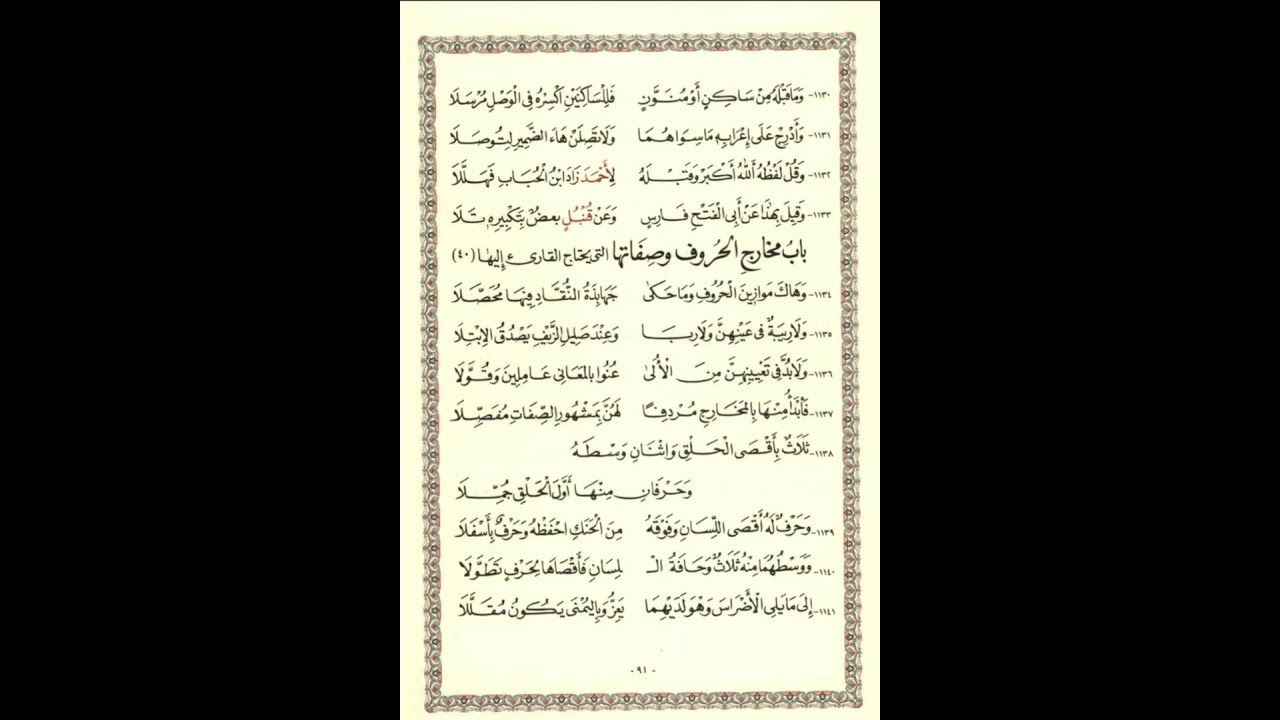 ١١٣٠- وَمَا قَبْلَهُ مِنْ سَاكِنٍ أَوْ مُنَوَّنٍ فَلِلسَّاكِنَيْنِ اكْسِرْهُ فِي الْوَصْلِ مُرْسَلَا
١١٣١- وَأَدْرِجْ عَلَى إِعْرَابِهِ مَا سِوَاهُمَا وَلَا تَصِلَنْ هَاءَ الضَّمِيرِ لِتُوصَلَا
١١٣٢- وَقُلْ لَفْظُهُ اللَّهُ أَكْبَرُ وَقَبْلَهُ لِأَحْمَدَ زَادَ ابْنُ الْحُبَابِ فَهَيْلَلَا
١١٣٣- وَقِيلَ بِهَذَا عَنْ أَبِي الْفَتْحِ فَارِسٍ وَعَنْ قُنْبُلٍ بَعْضٌ بِتَكْبِيرِهِ تَلَا
بَابُ مَخَارِجِ الْحُرُوفِ وَصِفَاتِهَا التي يحتاج القارئ إليها (٤٠)
١١٣٤- وَهَاكَ مَوَازِينَ الْحُرُوفِ وَمَا حَكَى جَهَابِذَةُ النُّقَّادِ فِيهَا مُحَصَّلَا
١١٣٥- وَلَا رِيبَةٌ فِي عَيْنِهِنَّ وَلَا رِبَا وَعِنْدَ صَلِيلِ الزَّيْفِ يَصْدُقُ الِابْتِلَا
١١٣٦- وَلَا بُدَّ فِي تَعْيِينِهِنَّ مِنَ الْأُلَى عُنُوا بِالْمَعَانِي عَامِلِينَ وَقُوَّلَا
١١٣٧- فَأَبْدَأُ مِنْهَا بِالْمَخَارِجِ مُرْدِفًا لَهُنَّ بِمَشْهُورِ الصِّفَاتِ مُفَصِّلَا
١١٣٨- ثَلَاثٌ بِأَقْصَى الْحَلْقِ وَاثْنَانِ وَسْطَهُ
وَحَرْفَانِ مِنْهَا أَوَّلَ الْحَلْقِ جُمِّلَا
١١٣٩- وَحَرْفٌ لَهُ أَقْصَى اللِّسَانِ وَفَوْقَهُ مِنَ الْحَنَكِ احْفَظْهُ وَحَرْفٌ بِأَسْفَلَا
١١٤٠- وَوَسْطُهُمَا مِنْهُ ثَلَاثٌ وَحَافَةُ الْـ لِسَانِ فَأَقْصَاهَا لِحَرْفٍ تَطَوَّلَا
١١٤١- إِلَى مَا يَلِي الْأَضْرَاسَ وَهْوَ لَدَيْهِمَا يَعِزُّ وَبِالْيُمْنَى يَكُونُ مُقَلَّلَا
- ٩١ -